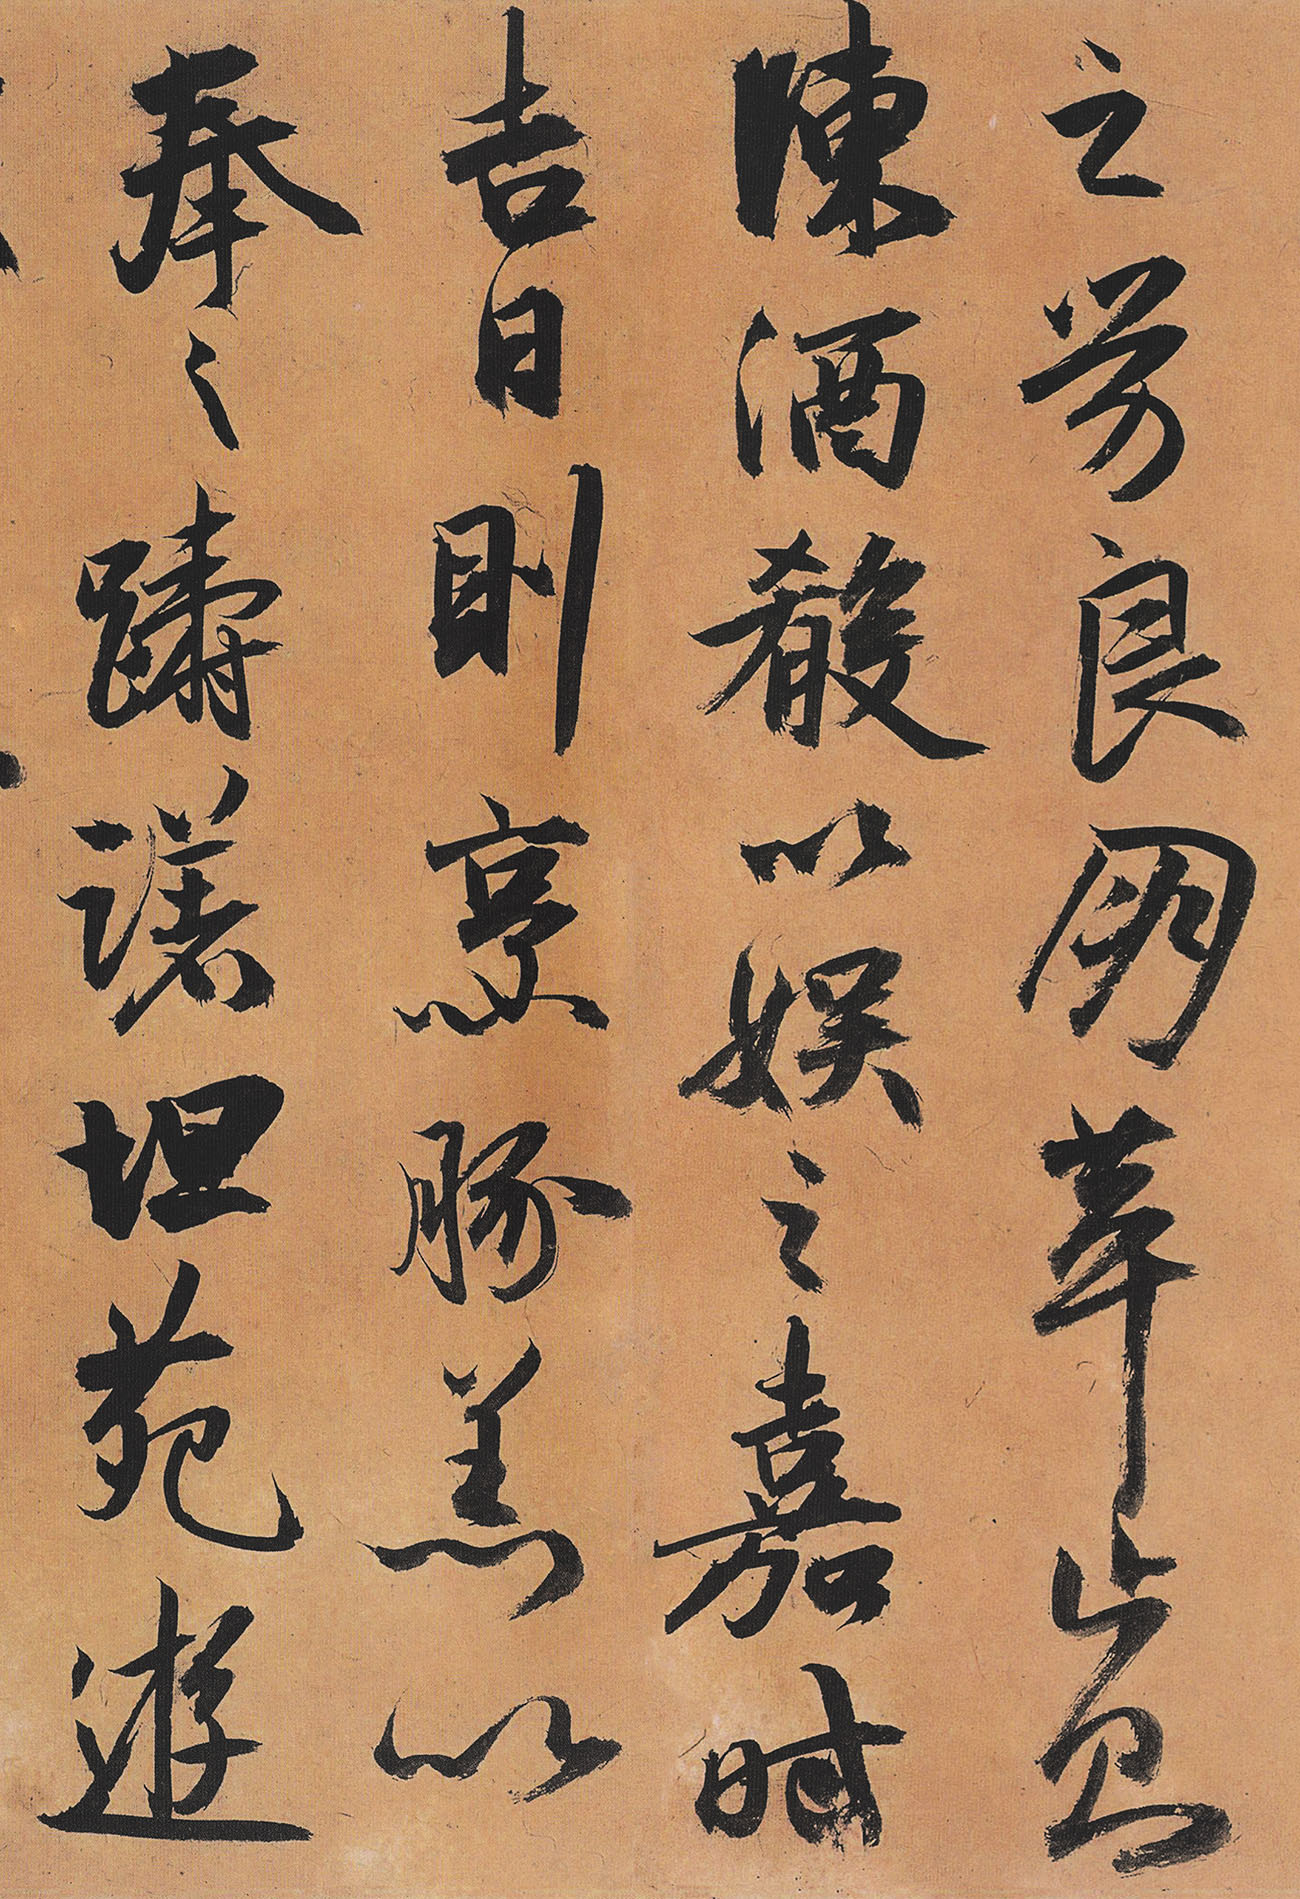 之勞良朋萃止則
陳酒殽以娛之嘉時
吉日則烹豚羔以
奉之躊躇坦苑遊